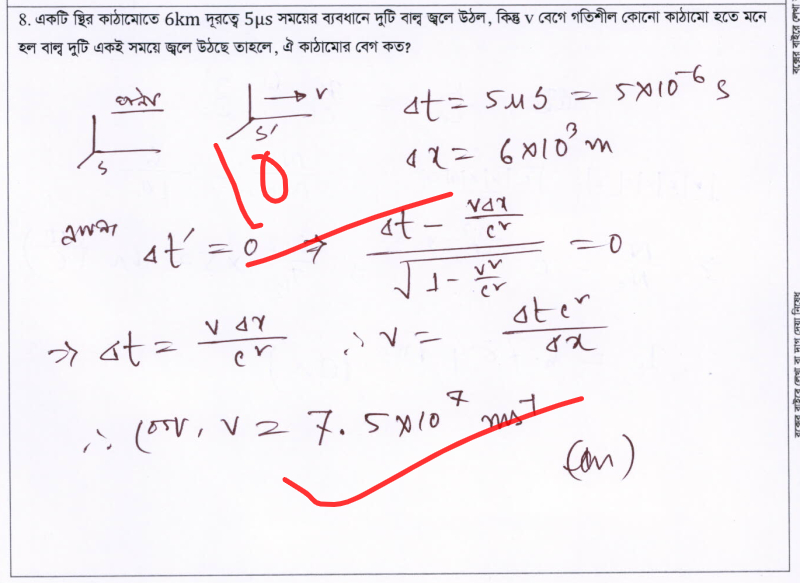 8. একটি স্থির কাঠামোতে 6km দূরত্বে 5μs সময়ের ব্যবধানে দুটি বাল্ব জ্বলে উঠল, কিন্তু v বেগে গতিশীল কোনো কাঠামো হতে মনে
হল বাল্ব দুটি একই সময়ে জ্বলে উঠছে তাহলে, ঐ কাঠামোর বেগ কত?
S
S' v
Δt = 5μs = 5×10⁻⁶ s
Δx = 6×10³ m
10
Δt' = 0 ⇒ (Δt - vΔx/c²) / √(1 - v²/c²) = 0
⇒ Δt = vΔx/c² ∴ v = Δtc²/Δx
∴ বেগ, v = 7.5×10⁷ ms⁻¹
(Ans)